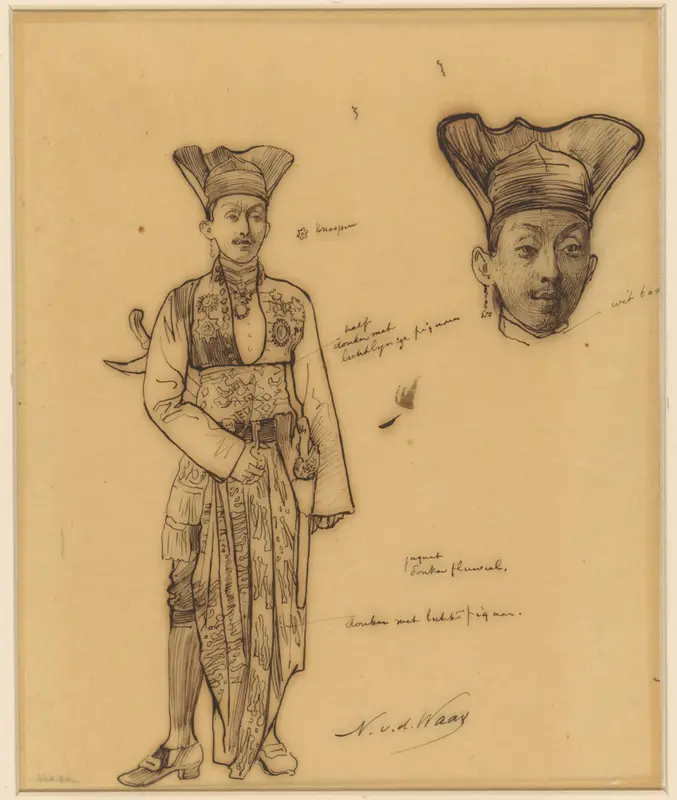 Knoopen
wit
half
donker met
figuren
jaquet
donker fluweel.
donker met lichte figuren.
N. v. d. Waay